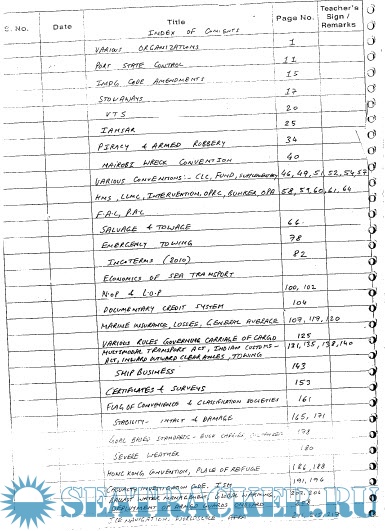 S. No. Date Title Page No. Teacher's Sign / Remarks
INDEX OF CONTENTS
VARIOUS ORGANIZATIONS 1
PORT STATE CONTROL 11
IMDG CODE AMENDMENTS 15
STOWAWAYS 17
VTS 20
IAMSAR 25
PIRACY & ARMED ROBBERY 34
NAIROBI WRECK CONVENTION 40
VARIOUS CONVENTIONS :- CLC, FUND, 46, 49, 51, 52, 54, 57
HNS, LLMC, INTERVENTION, OPRC, BUNKER, OPA 58, 59, 60, 61, 64
F.A.L, P.A.L
SALVAGE & TOWAGE 66
EMERGENCY TOWING 78
INCOTERMS (2010) 82
ECONOMICS OF SEA TRANSPORT
N.O.P & L.O.P 100, 102
DOCUMENTARY CREDIT SYSTEM 104
MARINE INSURANCE, LOSSES, GENERAL AVERAGE 107, 119, 120
VARIOUS RULES GOVERNING CARRIAGE OF CARGO 125
MULTIMODAL TRANSPORT ACT, INDIAN CUSTOMS- 131, 135, 138, 140
ACT, INWARD OUTWARD CLEARANCES, TOWING
SHIP BUSINESS 143
CERTIFICATES & SURVEYS 153
FLAG OF CONVENIENCE & CLASSIFICATION SOCIETIES 161
STABILITY - INTACT & DAMAGE 165, 171
GOAL BASED STANDARDS - BULK CARRIERS 178
SEVERE WEATHER 180
HONG KONG CONVENTION, PLACE OF REFUGE 186, 188
CASUALTY INVESTIGATION CODE, ISM 191, 196
BALLAST WATER MANAGEMENT, GLOBAL WARMING
DEPLOYMENT OF ARMED GUARDS
NAVIGATION